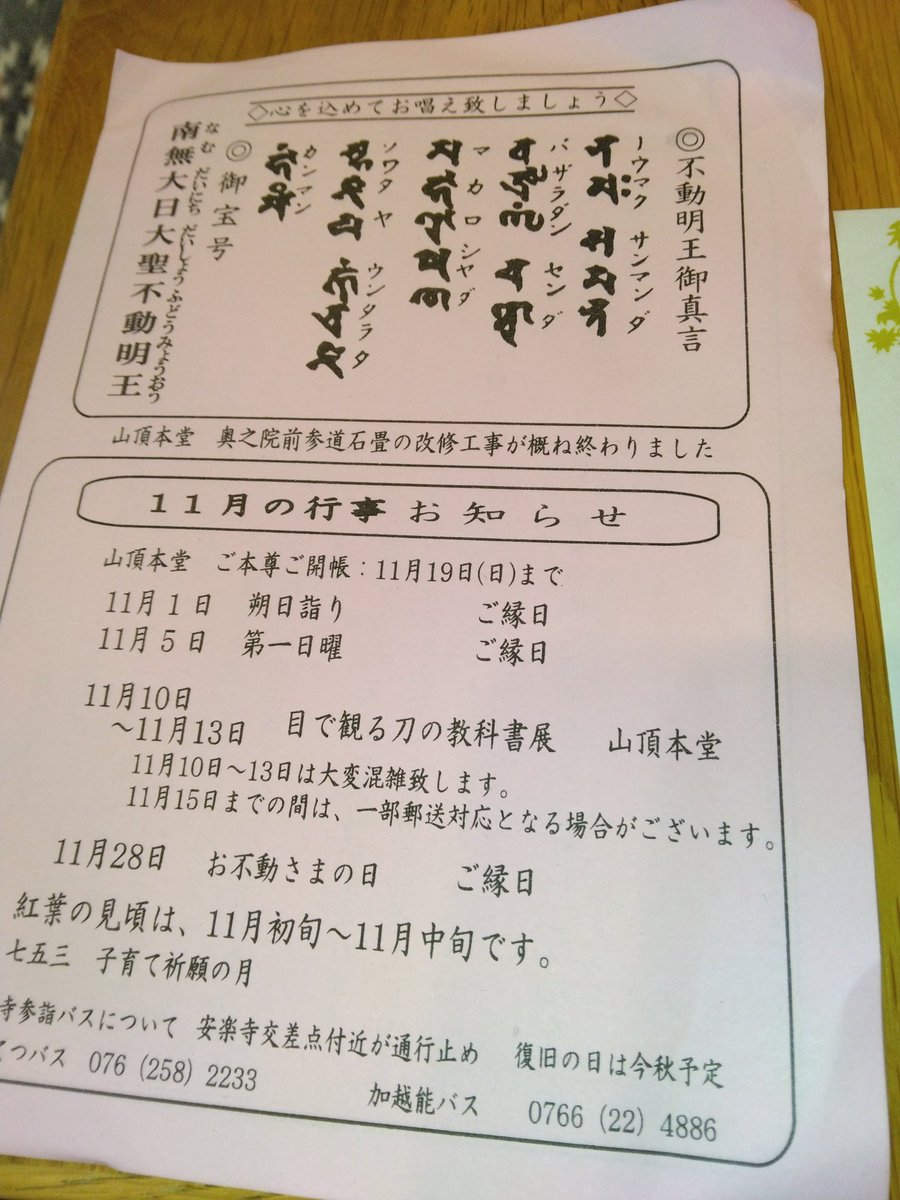 ◇心を込めてお唱え致しましょう◇
◎不動明王御真言
ノウマク サンマンダ
バザラダン センダ
マカロシヤダ
ソワタヤ ウンタラタ
カンマン
◎御宝号
南無大日大聖不動明王
なむ だいにち だいしょう ふどうみょうおう
山頂本堂 奥之院前参道石畳の改修工事が概ね終わりました
11月の行事お知らせ
山頂本堂 ご本尊ご開帳：11月19日(日)まで
11月1日 朔日詣り ご縁日
11月5日 第一日曜 ご縁日
11月10日
～11月13日 目で観る刀の教科書展 山頂本堂
11月10日～13日は大変混雑致します。
11月15日までの間は、一部郵送対応となる場合がございます。
11月28日 お不動さまの日 ご縁日
紅葉の見頃は、11月初旬～11月中旬です。
七五三 子育て祈願の月
寺参詣バスについて 安楽寺交差点付近が通行止め 復旧の日は今秋予定
てつバス 076 (258) 2233
加越能バス 0766 (22) 4886